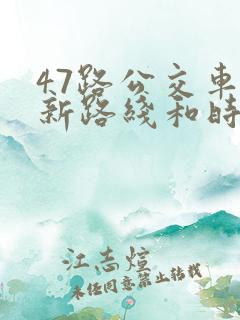 47路公交车
新路线和时
江志煊
未经同意禁止转载